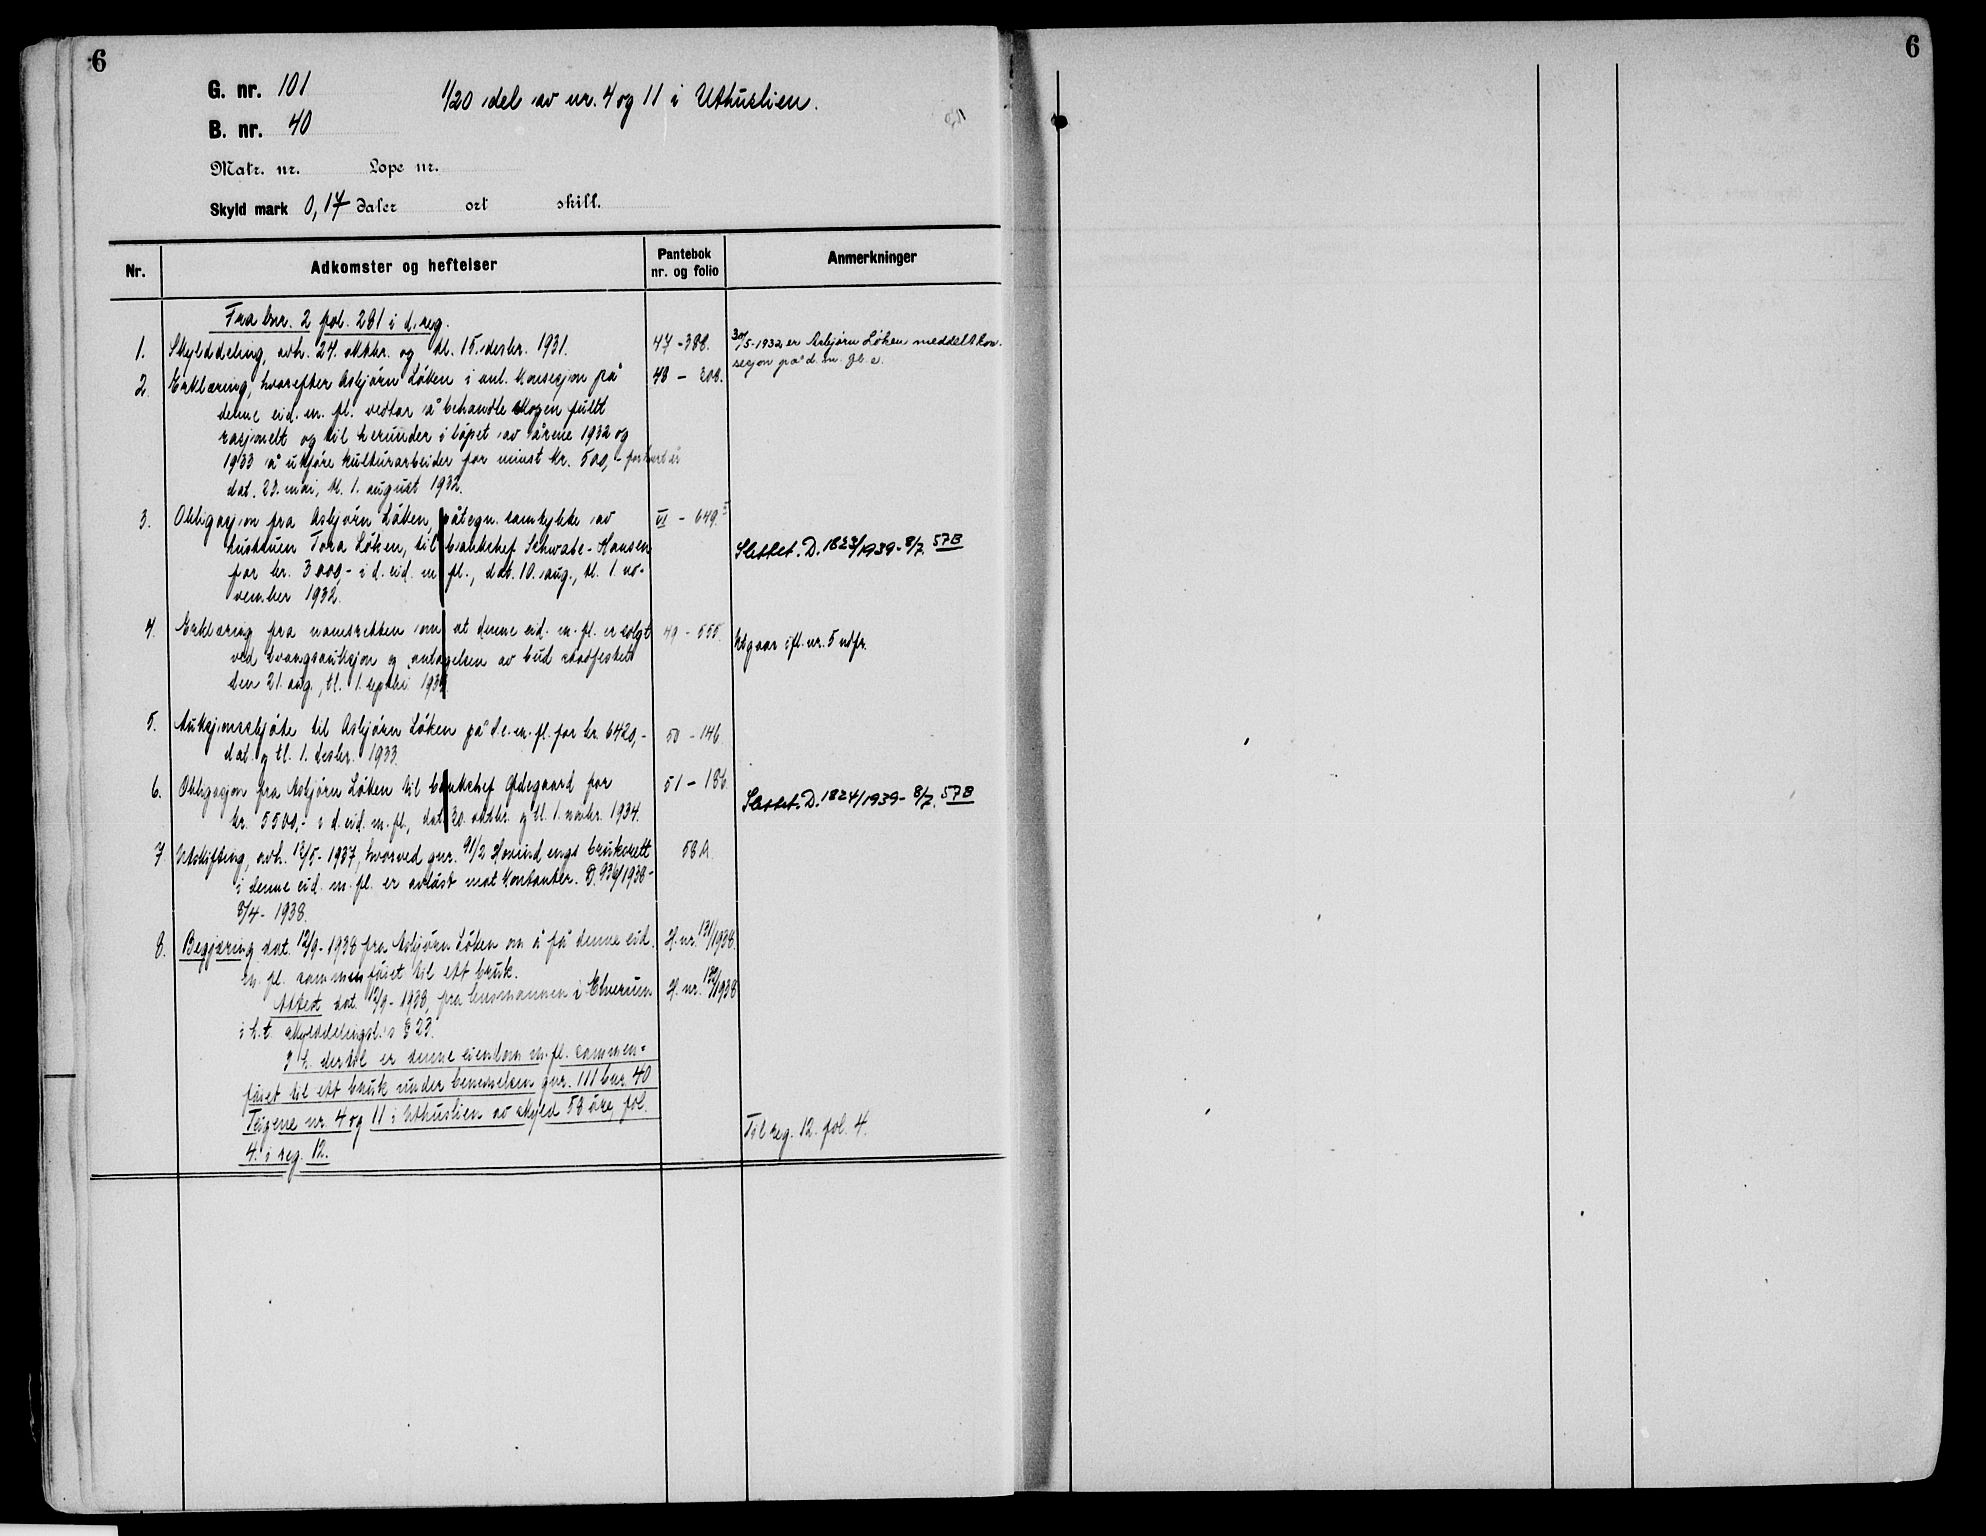 6
6
G. nr. 101
1/20 del av nr. 4 og 11 i Uthuslien.
B. nr. 40
Matr. nr. Løpe nr.
Skyld mark 0,17 daler ort skill.
Nr. Adkomster og heftelser Pantebok nr. og folio Anmerkninger
Fra bnr. 2 fol. 281 i d. reg.
1. Skylddeling, avh. 24. oktbr. og tl. 15. desbr. 1931. 47 - 388. 30/5-1932 er Asbjørn Løken meddelt kon-
sesjon på d. m. fl. e.
2. Erklæring, hvorefter Asbjørn Løken i anl. konsesjon på 48 - 208.
denne eid. m. fl. vedtar å behandle skogen fullt
rasjonelt og til herunder i løpet av årene 1932 og
1933 å utføre kulturarbeider for minst kr. 500,- for hvert år
dat. 23. mai, tl. 1. august 1932.
3. Obligasjon fra Asbjørn Løken, påtegn. samtykke av VI - 649.
hustruen Tora Løken, til banksjef Schwabe-Hansen Slettet. D. 1823/1939 - 8/7. 57B
for kr. 3000,- i d. eid. m. fl., dat. 10. aug., tl. 1. no-
vember 1932.
4. Erklæring fra namsretten om at denne eid. m. fl. er solgt 49 - 555. Utgaar ifl. nr. 5 ndfr.
ved tvangsauksjon og antagelsen av bud stadfestet
den 21. aug., tl. 1. septbr. 1933.
5. Auksjonsskjøte til Asbjørn Løken på d. e. m. fl. for kr. 6420,- 50 - 146.
dat. og tl. 1. desbr. 1933.
6. Obligasjon fra Asbjørn Løken til banksjef Ødegaard for 51 - 186. Slettet. D. 1824/1939 - 8/7. 57B
kr. 5500,- i d. eid. m. fl., dat. 20. oktbr. og tl. 1. novbr. 1934.
7. Utskifting, avh. 12/5-1937, hvorved gnr. 91/2 Hovind engs bruksrett 58 A.
i denne eid. m. fl. er avløst mot kontanter. D. 936/1938 -
8/4 - 1938.
8. Begjæring dat. 12/9-1938 fra Asbjørn Løken om å få denne eid. H. nr. 131/1938.
m. fl. sammenføiet til ett bruk.
Attest dat. 12/9-1938, fra lensmannen i Elverum H. nr. 132/1938
i h. t. skylddelingsl.s § 23.
I h. dertil er denne eiendom m. fl. sammen-
føiet til ett bruk under benevnelsen gnr. 111 bnr. 40
Teigene nr. 4 og 11 i Uthuslien av skyld 58 øre, fol. Til reg. 12. fol. 4.
4. i reg. 12.